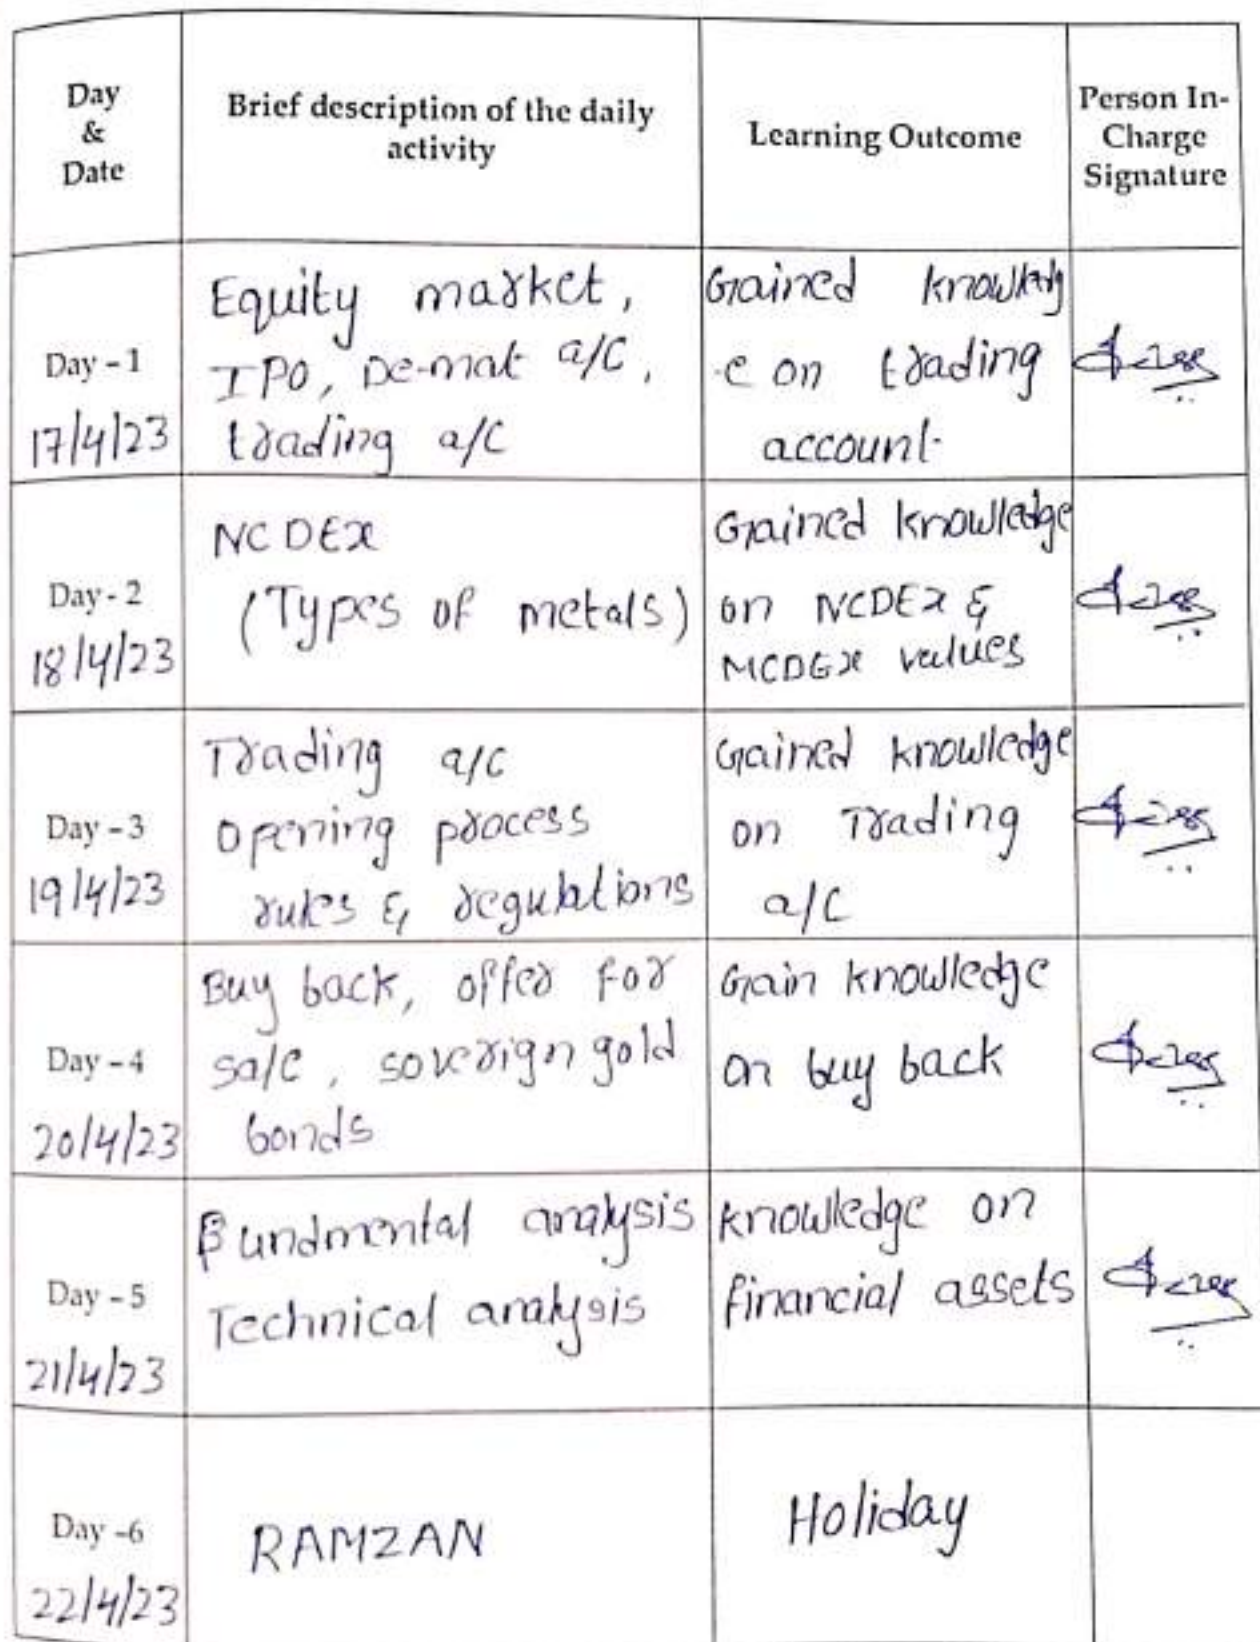 Day
&
Date
Brief description of the daily
activity
Learning Outcome
Person In-
Charge
Signature
Day - 1
17/4/23
Equity market,
IPO, De-mat a/c,
trading a/c
Gained knowledg
-e on trading
account.
Day - 2
18/4/23
NCDEX
(Types of metals)
Gained knowledge
on NCDEX &
MCDEX values
Day - 3
19/4/23
Trading a/c
opening process
rules & regulations
Gained knowledge
on Trading
a/c
Day - 4
20/4/23
Buy back, offer for
sale, soverign gold
bonds
Gain knowledge
on buy back
Day - 5
21/4/23
Fundmental analysis
Technical analysis
knowledge on
financial assets
Day -6
22/4/23
RAMZAN
Holiday